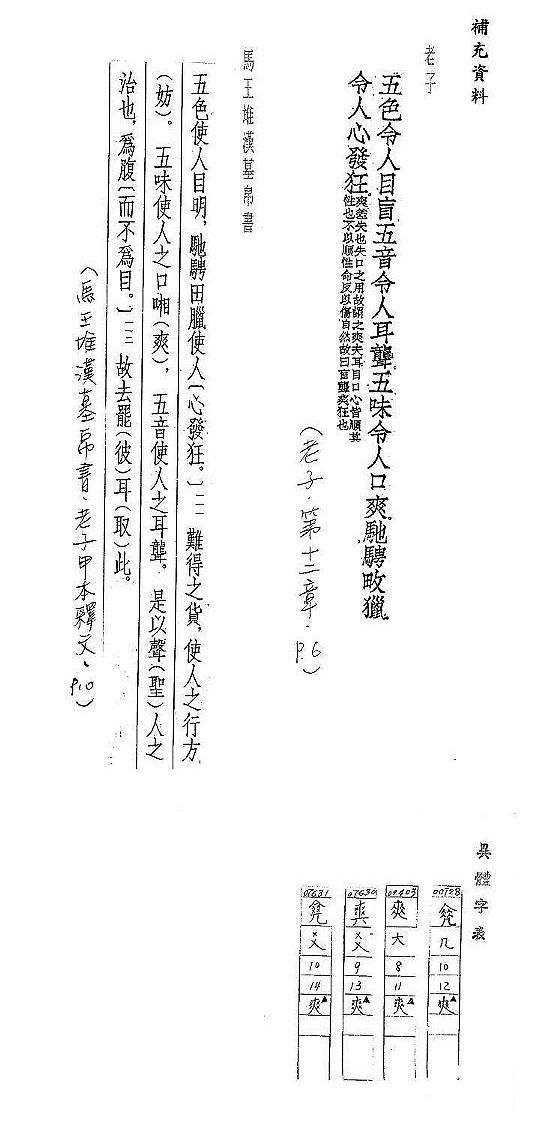 補充資料
老子
五色令人目盲五音令人耳聾五味令人口爽馳騁畋獵
令人心發狂爽差失也失口之用故謂之爽夫耳目口心皆順其
性也不以順性命反以傷自然故曰盲聾爽狂也
(老子.第十二章.P.6)
馬王堆漢墓帛書
五色使人目明,馳騁田臘使人〔心發狂。〕一一 難得之貨,使人之行方
(妨)。 五味使人之口㗽(爽), 五音使人之耳聾。 是以聲(聖)人之
治也,爲腹〔而不爲目。〕一二 故去罷(彼)耳(取)此。
(馬王堆漢墓帛書.老子甲本釋文.P.10)
異體字表
00728
几
10
12
爽▲
02403
大
8
11
爽▲
07630
爻
9
13
爽▲
07631
爻
10
14
爽▲